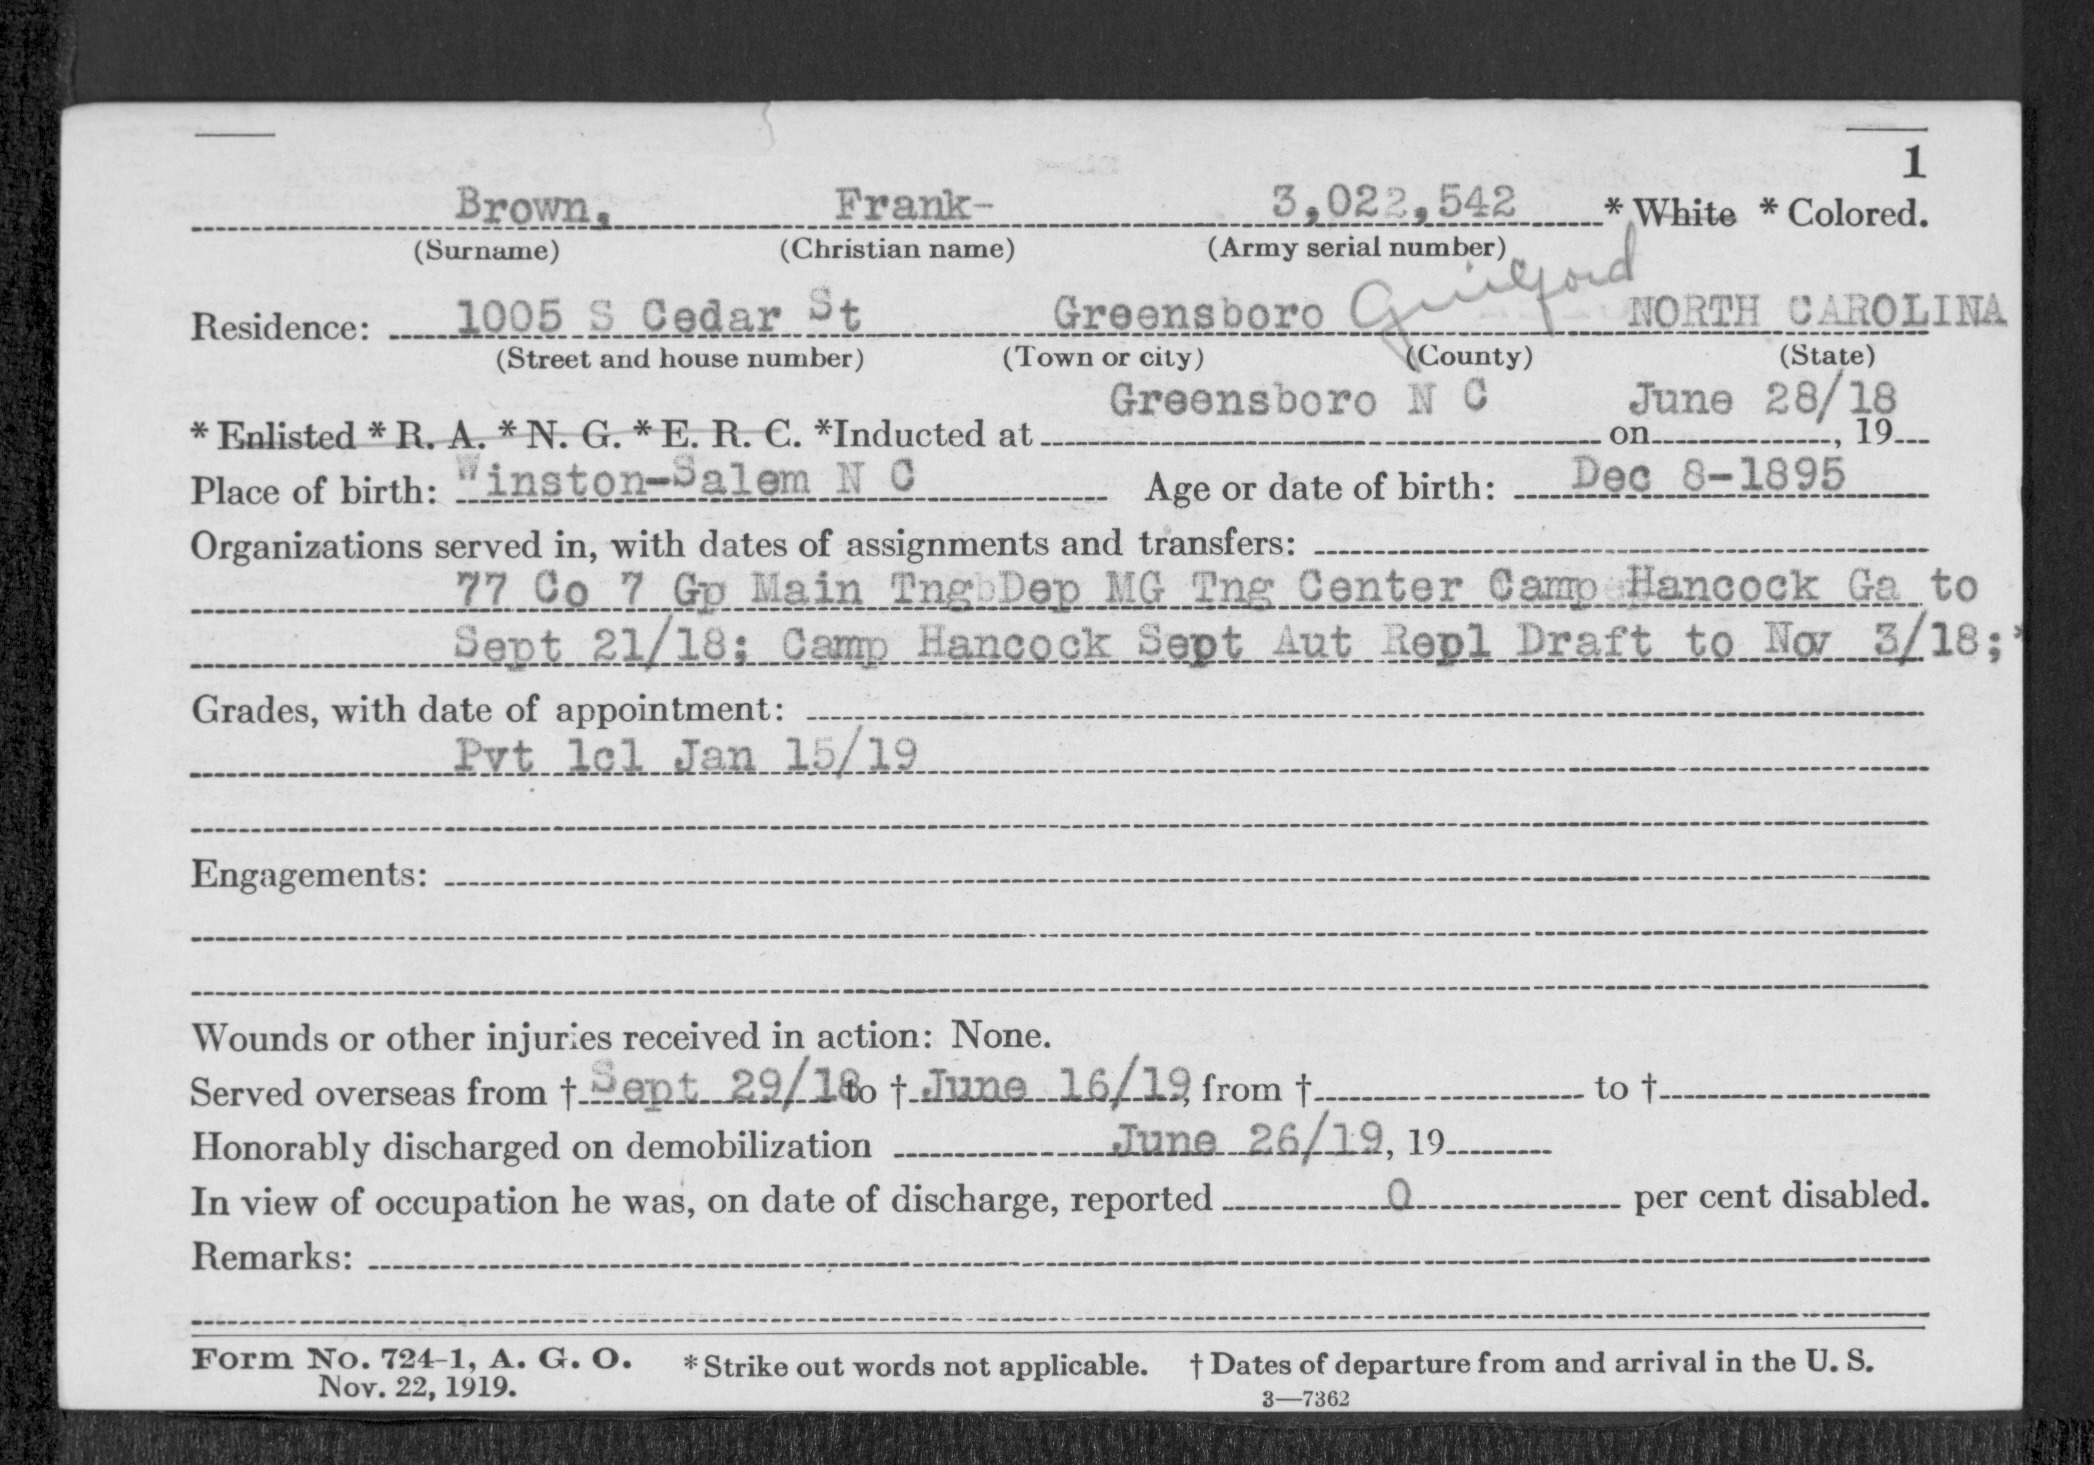 1
Brown, Frank- 3,022,542 * White * Colored.
(Surname) (Christian name) (Army serial number)
Residence: 1005 S Cedar St Greensboro Guilford NORTH CAROLINA
(Street and house number) (Town or city) (County) (State)
Greensboro N C June 28/18
* Enlisted * R. A. * N. G. * E. R. C. *Inducted at on , 19
Place of birth: Winston-Salem N C Age or date of birth: Dec 8-1895
Organizations served in, with dates of assignments and transfers:
77 Co 7 Gp Main Tng Dep MG Tng Center Camp Hancock Ga to
Sept 21/18; Camp Hancock Sept Aut Repl Draft to Nov 3/18;*
Grades, with date of appointment:
Pvt 1cl Jan 15/19
Engagements:
Wounds or other injuries received in action: None.
Served overseas from † Sept 29/18 to † June 16/19, from † to †
Honorably discharged on demobilization June 26/19, 19
In view of occupation he was, on date of discharge, reported 0 per cent disabled.
Remarks:
Form No. 724-1, A. G. O. * Strike out words not applicable. † Dates of departure from and arrival in the U. S.
Nov. 22, 1919. 3—7362